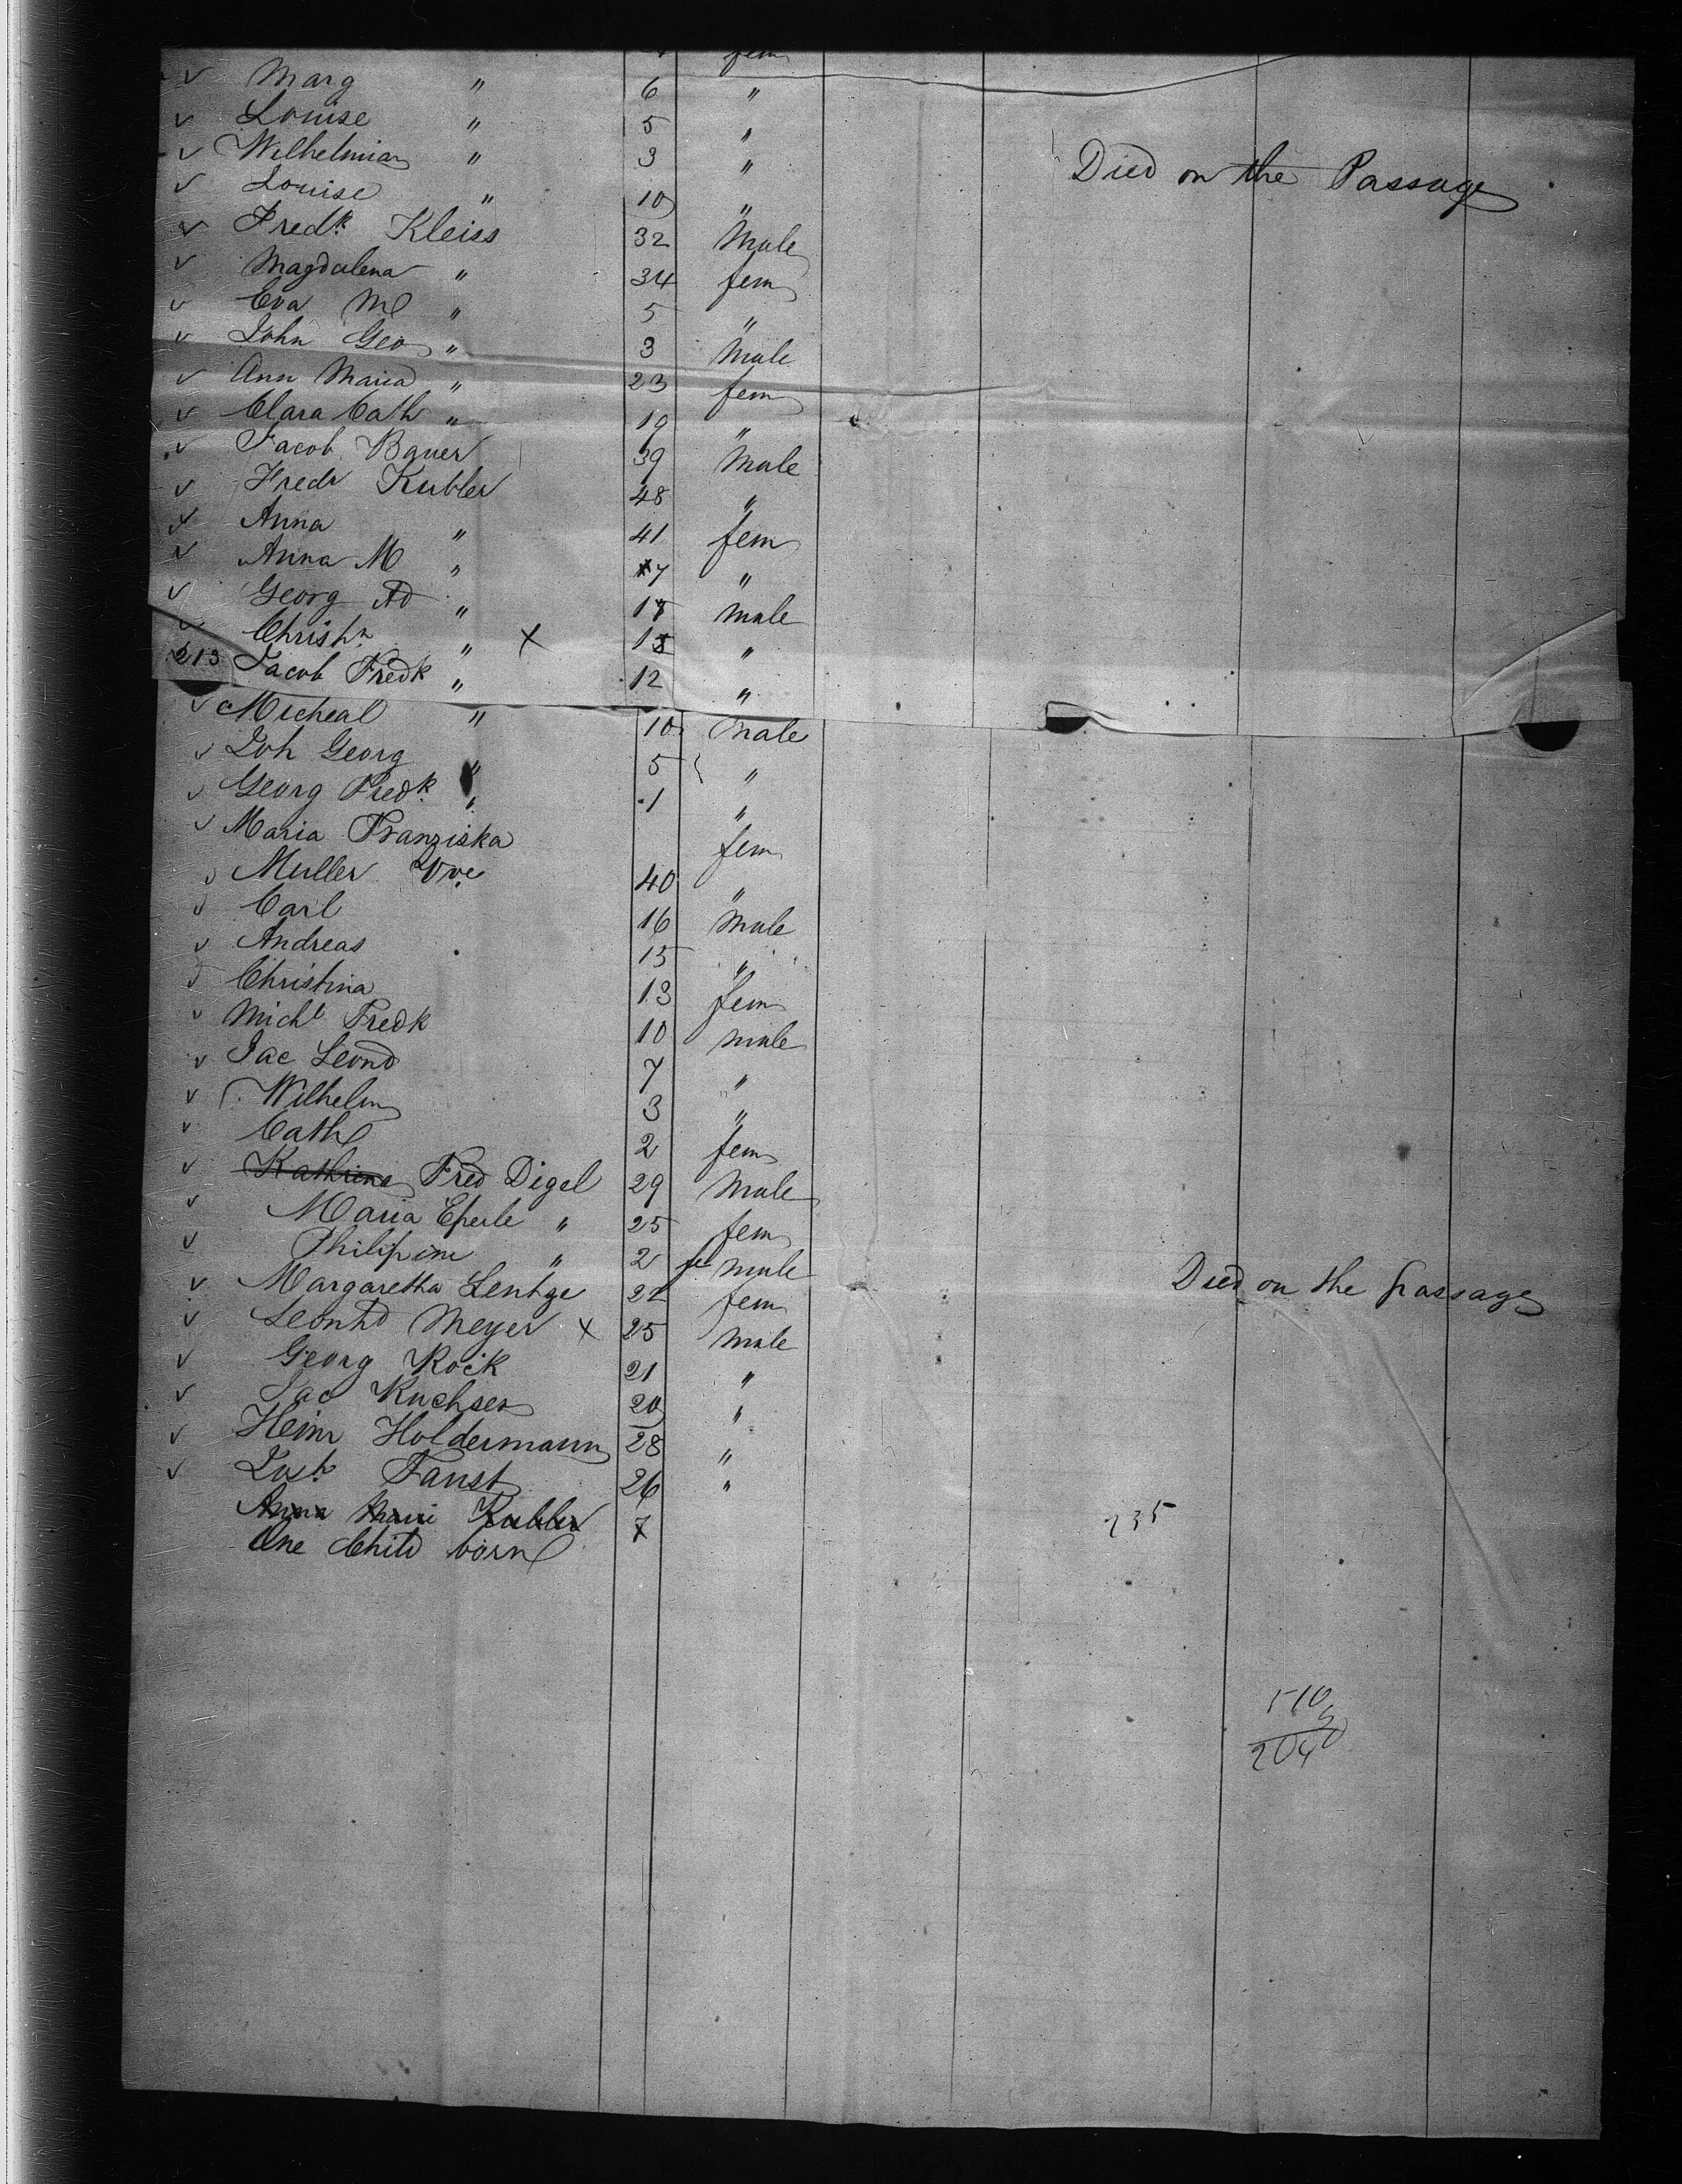 fem
✓ Marg " 6 "
✓ Louise " 5 "
✓ Wilhelmian " 3 " Died on the Passage
✓ Louise " 10 "
✓ Fredk. Kleiss 32 Male
✓ Magdalena " 34 fem
✓ Eva M " 5 "
✓ John Geo " 3 Male
✓ Ann Maria " 23 fem
✓ Clara Cath " 19 "
✓ Jacob Bauer 39 Male
✓ Fredr Kubler 48 "
✓ Anna " 41 fem
✓ Anna M " 7 "
✓ Georg Ad " 17 male
✓ Christn " X 15 "
213 Jacob Fredk " 12 "
✓ Micheal " 10 Male
✓ Joh Georg " 5 "
✓ Georg Fredk. " 1 "
✓ Maria Franziska fem
✓ Muller Wve 40 "
✓ Carl 16 Male
✓ Andreas 15 "
✓ Christina 13 fem
✓ Michl Fredk 10 male
✓ Jac Leond 7 "
✓ Wilhelm 3 "
✓ Cath 2 fem
✓ Kathrina Fred Digel 29 Male
✓ Maria Eperle " 25 fem
✓ Philipine " 2 fe male Died on the passage
✓ Margaretha Lentze 22 fem
✓ Leonhd Meyer X 25 Male
✓ Georg Rock 21 "
✓ Jac Kuchsen 20 "
✓ Heinr Holdermann 28 "
✓ Just. Faust 26 "
Anna Marie Kubler 7 235
One Child born
510
204